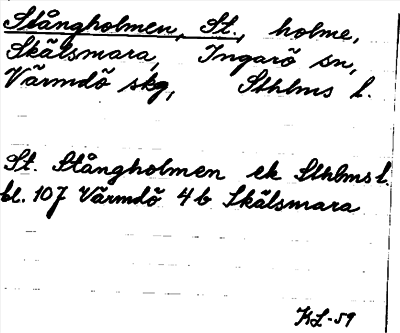 Stångholmen, St., holme,
Skälsmara, Ingarö sn,
Värmdö skg, Sthlms l.
St. Stångholmen ek Sthlms l.
bl. 107 Värmdö 4 b Skälsmara
KL-59